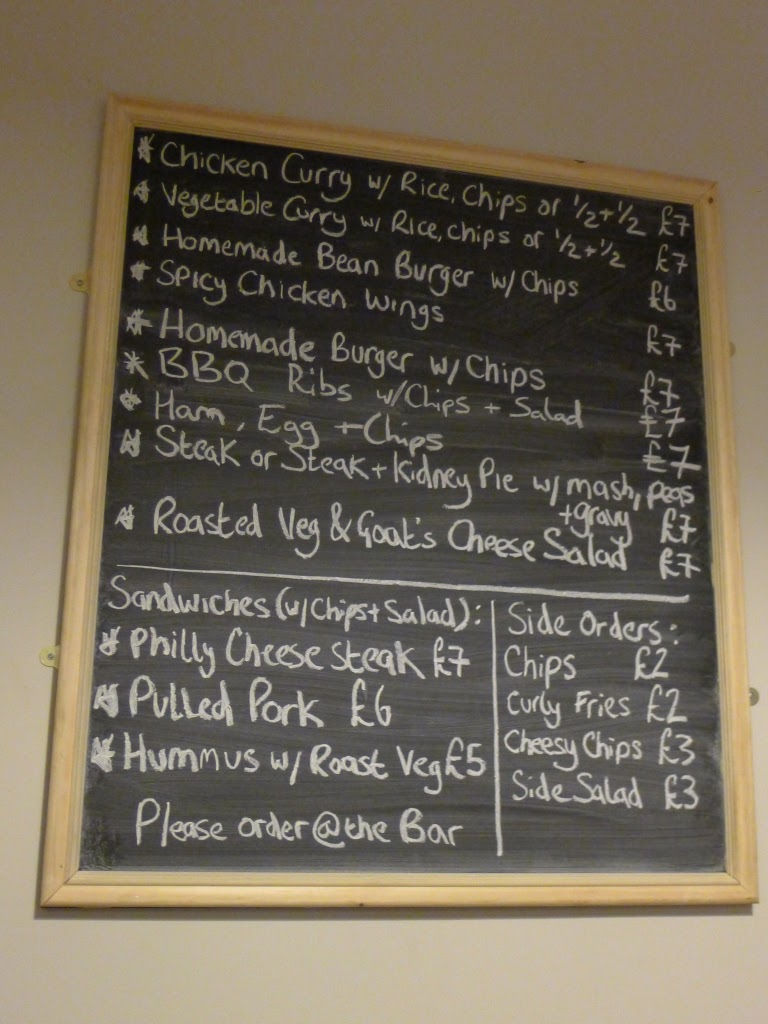 * Chicken Curry w/ Rice, Chips or 1/2 + 1/2 £7
* Vegetable Curry w/ Rice, chips or 1/2 + 1/2 £7
* Homemade Bean Burger w/ Chips £6
* Spicy Chicken Wings £7
* Homemade Burger w/ Chips £7
* BBQ Ribs w/ Chips + Salad £7
* Ham, Egg + Chips £7
* Steak or Steak + Kidney Pie w/ mash, peas
+ gravy £7
* Roasted Veg & Goat's Cheese Salad £7
Sandwiches (w/ Chips + Salad):
* Philly Cheese Steak £7
* Pulled Pork £6
* Hummus w/ Roast Veg £5
Please order @ the Bar
Side Orders:
Chips £2
Curly Fries £2
Cheesy Chips £3
Side Salad £3